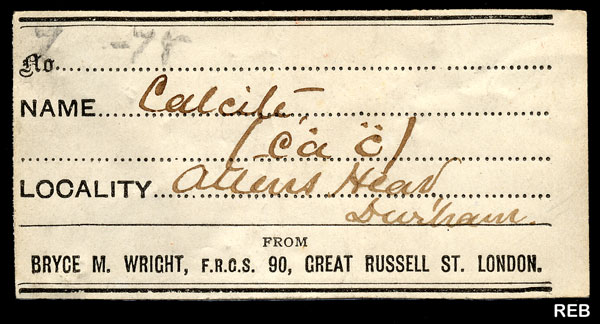 7 -75
No.
NAME Calcite
(Ċa c̈)
LOCALITY Allens Head,
Durham.
FROM
BRYCE M. WRIGHT, F.R.C.S. 90, GREAT RUSSELL ST. LONDON.
REB